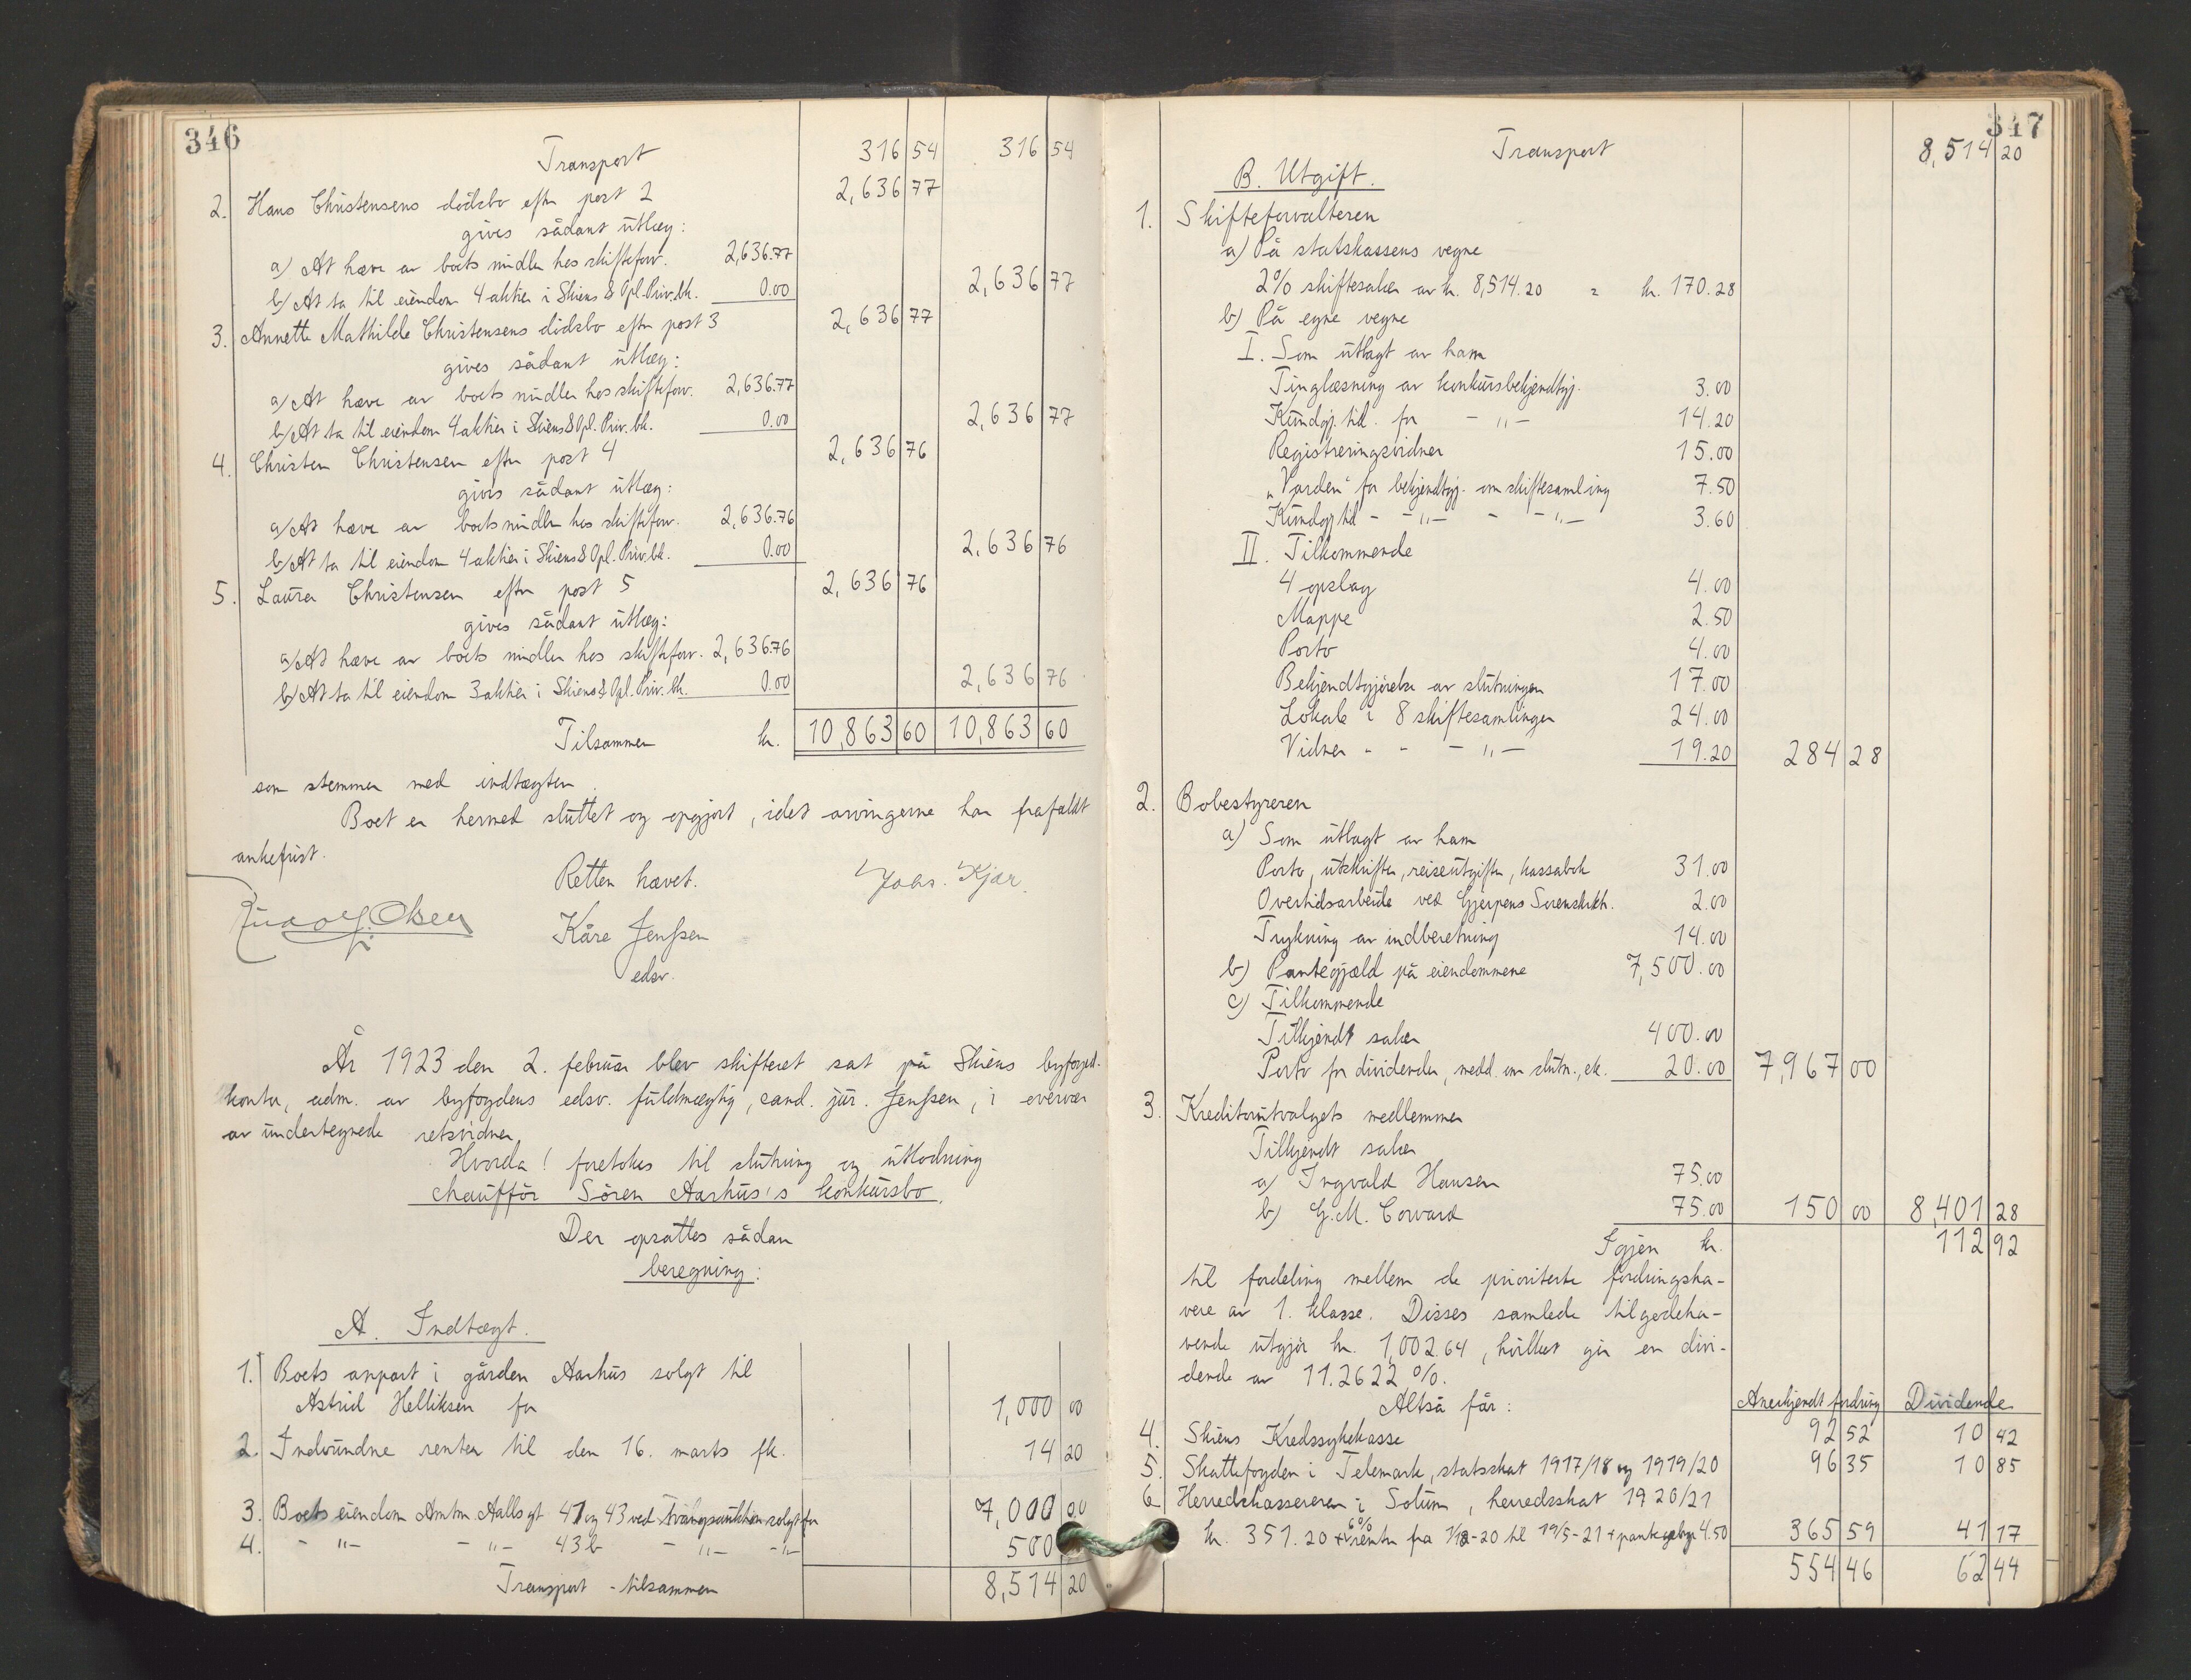 346
Transport 316 54 316 54
2. Hans Christensens dödsbo efter post 2 2,636 77
gives sådant utlæg:
a) At hæve av boets midler hos skifteforv. 2,636.77
b) At ta til eiendom 4 aktier i Skiens & Opl. Priv.bk. 0.00 2,636 77
3. Annette Mathilde Christensens dödsbo efter post 3 2,636 77
gives sådant utlæg:
a) At hæve av boets midler hos skifteforv. 2,636.77
b) At ta til eiendom 4 aktier i Skiens & Opl. Priv. bk. 0.00 2,636 77
4. Christen Christensen efter post 4 2,636 76
gives sådant utlæg:
a) At hæve av boets midler hos skifteforv. 2,636.76
b) At ta til eiendom 4 aktier i Skiens & Opl. Priv.bk. 0.00 2.636 76
5. Laura Christensen efter post 5 2,636 76
gives sådant utlæg:
a) At hæve av boets midler hos skifteforv. 2,636.76
b) At ta til eiendom 3 aktier i Skiens & Opl. Priv. bk. 0.00 2,636 76
Tilsammen kr. 10,863 60 10,863 60
som stemmer med indtægten.
Boet er hermed sluttet og opgjort, idet arvingerne har frafaldt
ankefrist.
Retten hævet. Johs. Kjær.
Rudolf Olsen Kåre Jenssen
edsv.
År 1923 den 2. februar blev skifteret sat på Skiens byfoged-
kontor, adm. av byfogdens edsv. fuldmægtig, cand. jur. Jenssen, i overvær
av undertegnede retsvidner.
Hvorda! foretokes til slutning og utlodning
chauffør Sören Aarhus's konkursbo.
Der opsattes sådan
beregning:
A. Indtægt.
1. Boets anpart i gården Aarhus solgt til
Astrid Helliksen for 1,000 00
2. Indvundne renter til den 16. marts fk. 14 20
3. Boets eiendom Amtm Aallsgt 41 og 43 ved tvangsauktion solgt for 7,000 00
4. - "- - "- 43b - "- -"- 500
Transport - tilsammen 8,514 20
347
Transport 8,514 20
B. Utgift.
1. Skifteforvalteren
a) På statskassens vegne
2% skiftesalær av kr. 8,514.20 = kr. 170.28
b) På egne vegne
I. Som utlagt av ham
Tinglæsning av konkursbekjendtgj. 3.00
Kundgj. tid. for - "- 14.20
Registreringsvidner 15.00
"Varden" for bekjendtgj. om skiftesamling 7.50
Kundgj tid - - "- - - "- 3.60
II. Tilkommende
4 opslag 4.00
Mappe 2.50
Porto 4.00
Bekjendtgjörelse av slutningen 17.00
Lokale i 8 skiftesamlinger 24.00
Vidner - - - "- 19.20 284 28
2. Bobestyreren
a) Som utlagt av ham
Porto, utskrifter, reiseutgifter, kassabok 31.00
Overtidsarbeide ved Gjerpens Sorenskrkt. 2.00
Trykning av indberetning 14.00
b) Pantegjæld på eiendommene 7,500.00
c) Tilkommende
Tilkjendt salær 400.00
Porto for dividender, medd. om slutn., etc. 20.00 7,967 00
3. Kreditorutvalgets medlemmer
Tilkjendt salær
a) Ingvald Hansen 75.00
b) G. M. Corvard 75.00 150 00 8,401 28
Igjen kr. 112 92
til fordeling mellem de prioriterte fordringsha-
vere av 1. klasse. Disses samlede tilgodeha-
vende utgjör kr. 1,002.64, hvilket gir en divi-
dende av 11.2622 %.
Altså får: Anerkjendt fordring Dividende
4. Skiens Kredssykekasse 92 52 10 42
5. Skattefogden i Telemark, statsskat 1917/18 og 1919/20 96 35 10 85
6. Herredskassereren i Solum, herredsskat 1920/21
kr. 351.20 + 6% renter fra 1/12-20 til 19/5-21 + pantegebyr 4.50 365 59 41 17
554 46 62 44